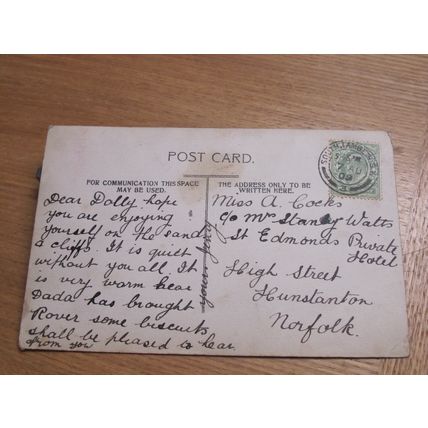 POST CARD.
FOR COMMUNICATION THIS SPACE
MAY BE USED.
Dear Dolly hope
you are enjoying
yourself on the sand
& cliffs. It is quiet
without you all. It
is very warm hear
Dada has brought
Rover some biscuits
shall be pleased to hear.
from you
THE ADDRESS ONLY TO BE
WRITTEN HERE.
Miss A. Cocks
c/o Mrs Stanley Watts
St Edmonds Private
Hotel
High Street
Hunstanton
Norfolk.
SOUTH LAMBETH
09